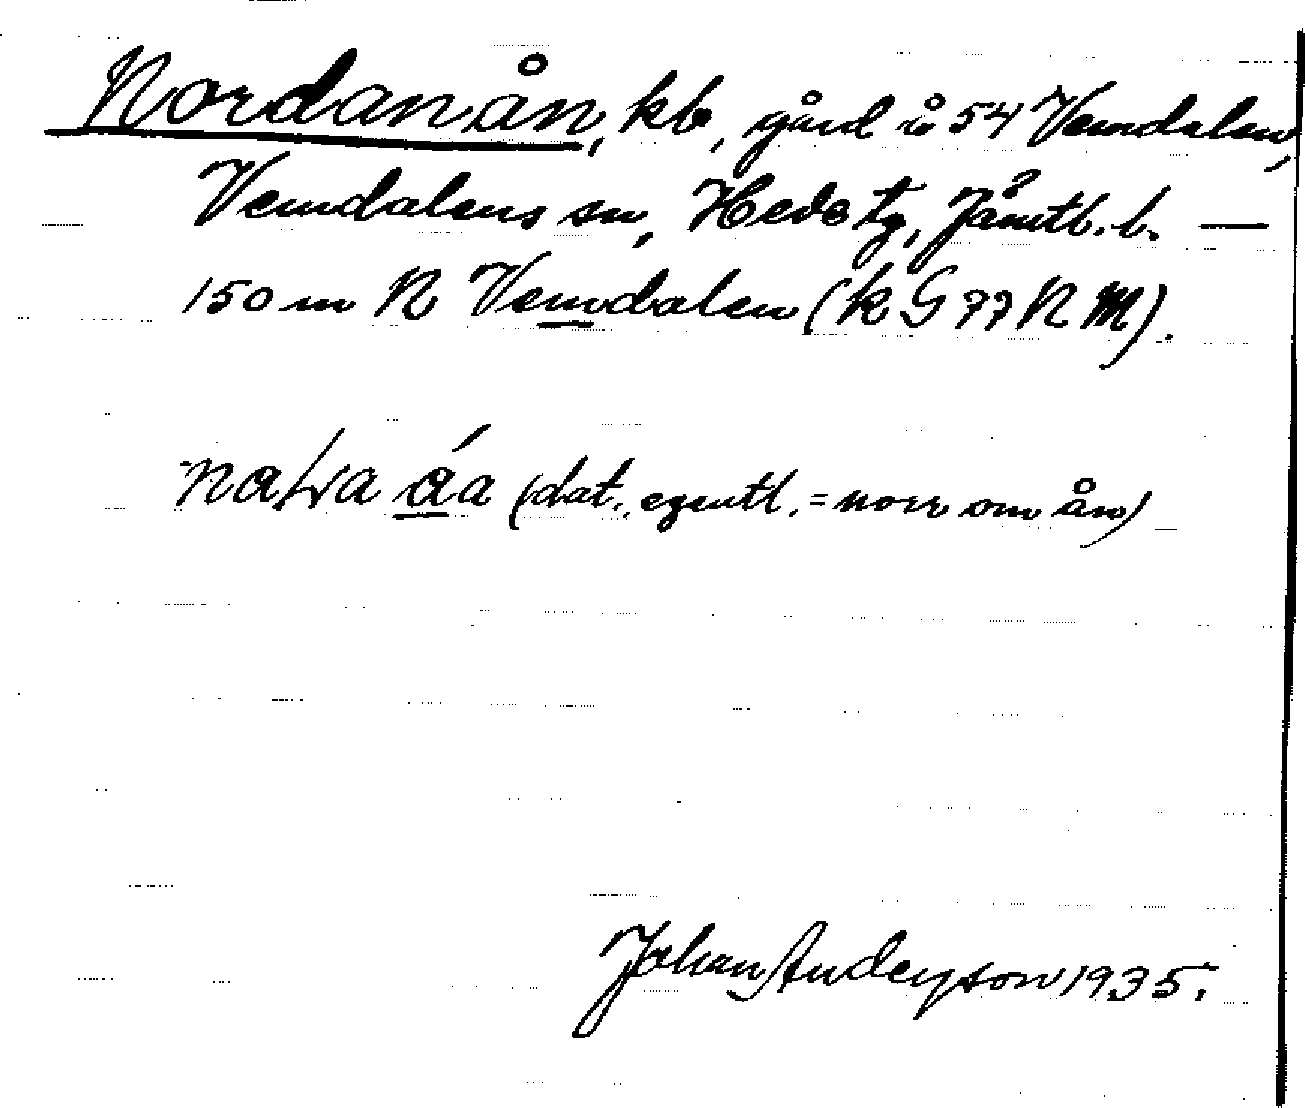 Nordanån, kb, gård i 54 Vemdalen,
Vemdalens sn, Hede tg, Jämtl. l. —
150 m N Vemdalen (k G 77 N M).
(dat., egentl. = norr om ån)
Johan Anderson 1935.